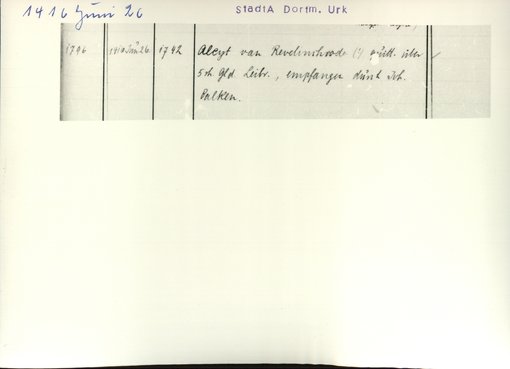 1416 Juni 26
StadtA Dortm. Urk
1796 1416 Jun 26. 1742 Aleyt van Revelinchrode (?) quitt. über
5 rh. Gld. Leibr., empfangen durch Joh.
Balken.